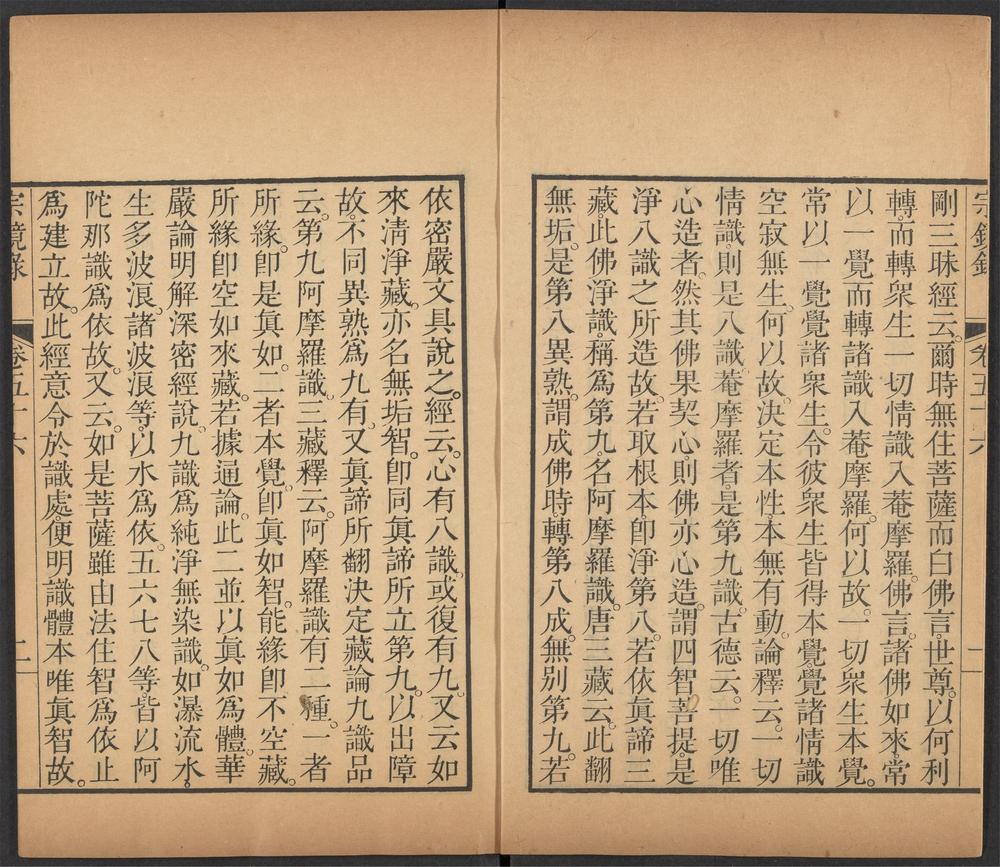 宗鏡錄 卷五十六 二
剛三昧經云。爾時無住菩薩而白佛言。世尊。以何利
轉。而轉衆生一切情識入菴摩羅。佛言。諸佛如來。常
以一覺而轉諸識入菴摩羅。何以故。一切衆生本覺。
常以一覺覺諸衆生。令彼衆生皆得本覺。覺諸情識
空寂無生。何以故。決定本性本無有動。論釋云。一切
情識。則是八識。菴摩羅者。是第九識。古德云。一切唯
心造者。然其佛果契心。則佛亦心造。謂四智菩提。是
淨八識之所造故。若取根本。即淨第八。若依眞諦三
藏。此佛淨識。稱爲第九。名阿摩羅識。唐三藏云。此翻
無垢。是第八異熟。謂成佛時。轉第八成無别第九。若
依密嚴文具說之。經云。心有八識。或復有九。又云如
來清淨藏。亦名無垢智。卽同眞諦所立第九。以出障
故。不同異熟爲九有。又眞諦所翻決定藏論九識品
云。第九阿摩羅識。三藏釋云。阿摩羅識有二種。一者
所緣。卽是眞如。二者本覺。卽眞如智。能緣卽不空藏。
所緣卽空如來藏。若據通論。此二並以眞如爲體。華
嚴論明解深密經說。九識爲純淨無染識。如瀑流水。
生多波浪。諸波浪等。以水爲依。五六七八等。皆以阿
陀那識爲依故。又云。如是菩薩雖由法住智爲依止
爲建立故。此經意令於識處。便明識體本唯眞智故。
宗鏡錄 卷五十六 二